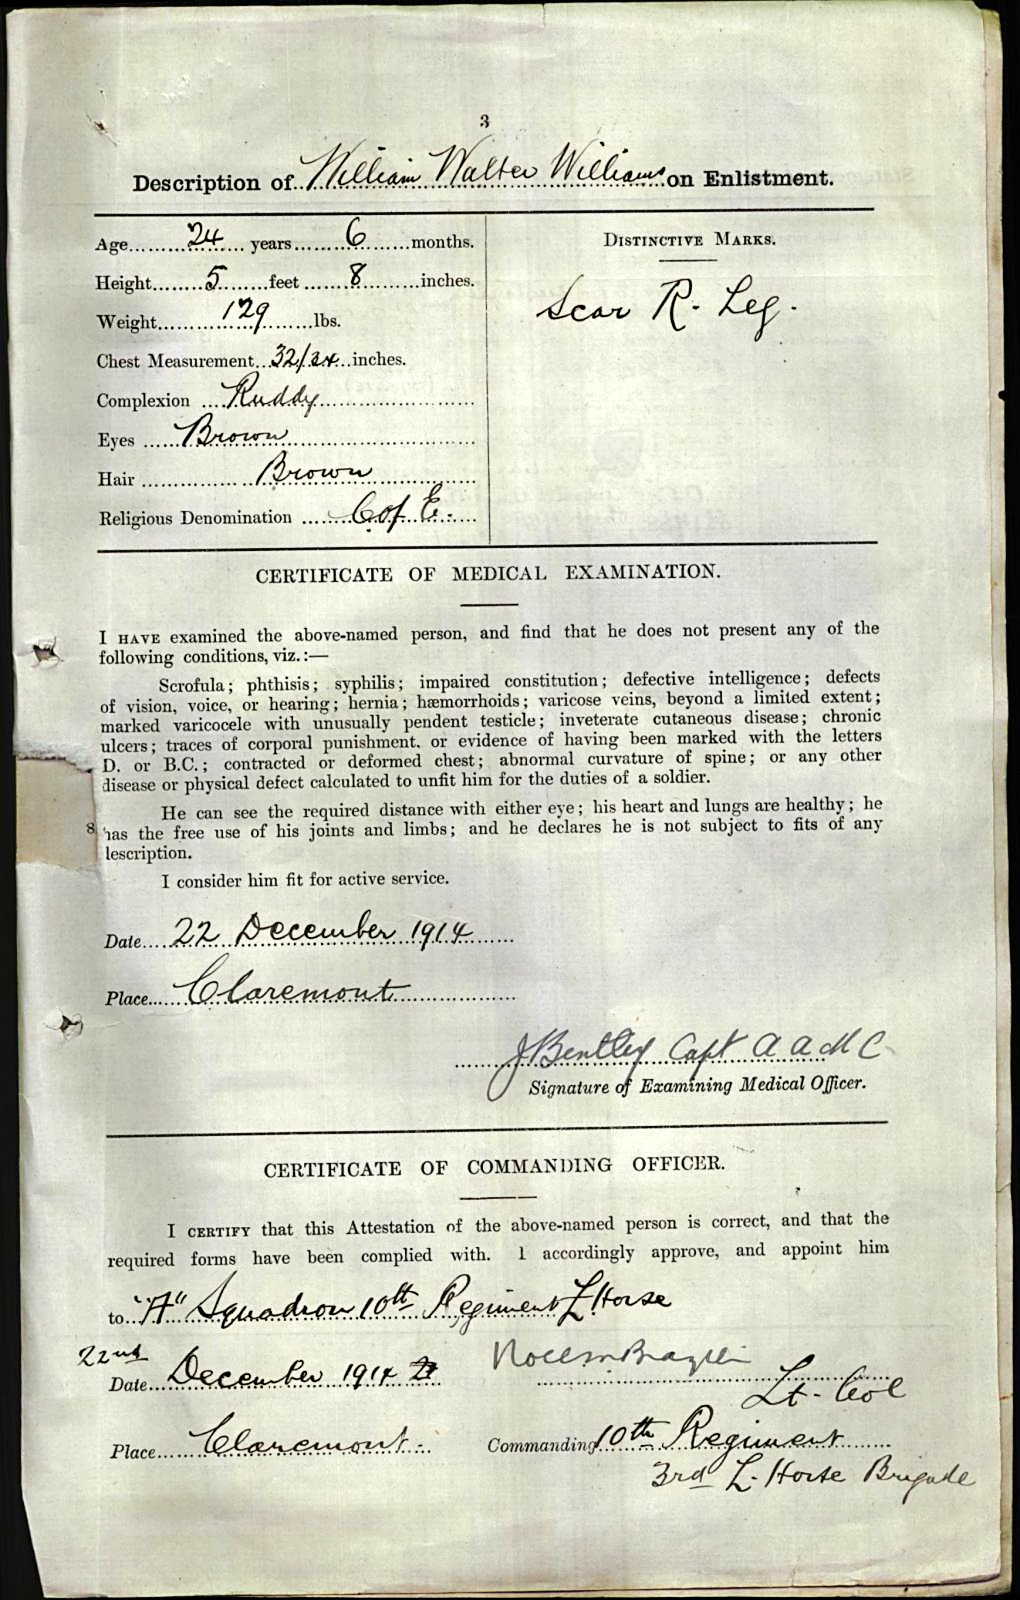 3
Description of William Walter Williams on Enlistment.
Age 24 years 6 months.
Height 5 feet 8 inches.
Weight 129 lbs.
Chest Measurement 32/34 inches.
Complexion Ruddy
Eyes Brown
Hair Brown
Religious Denomination C of E.
DISTINCTIVE MARKS.
Scar R. Leg.
CERTIFICATE OF MEDICAL EXAMINATION.
I HAVE examined the above-named person, and find that he does not present any of the
following conditions, viz.:—
Scrofula; phthisis; syphilis; impaired constitution; defective intelligence; defects
of vision, voice, or hearing; hernia; hæmorrhoids; varicose veins, beyond a limited extent;
marked varicocele with unusually pendent testicle; inveterate cutaneous disease; chronic
ulcers; traces of corporal punishment, or evidence of having been marked with the letters
D. or B.C.; contracted or deformed chest; abnormal curvature of spine; or any other
disease or physical defect calculated to unfit him for the duties of a soldier.
He can see the required distance with either eye; his heart and lungs are healthy; he
8 has the free use of his joints and limbs; and he declares he is not subject to fits of any
description.
I consider him fit for active service.
Date 22 December 1914
Place Claremont
J Bentley Capt A A M C
Signature of Examining Medical Officer.
CERTIFICATE OF COMMANDING OFFICER.
I CERTIFY that this Attestation of the above-named person is correct, and that the
required forms have been complied with. I accordingly approve, and appoint him
to "A" Squadron 10th Regiment L Horse
22nd
Date December 1914
Lt- Col
Place Claremont.
Commanding 10th Regiment
3rd L. Horse Brigade